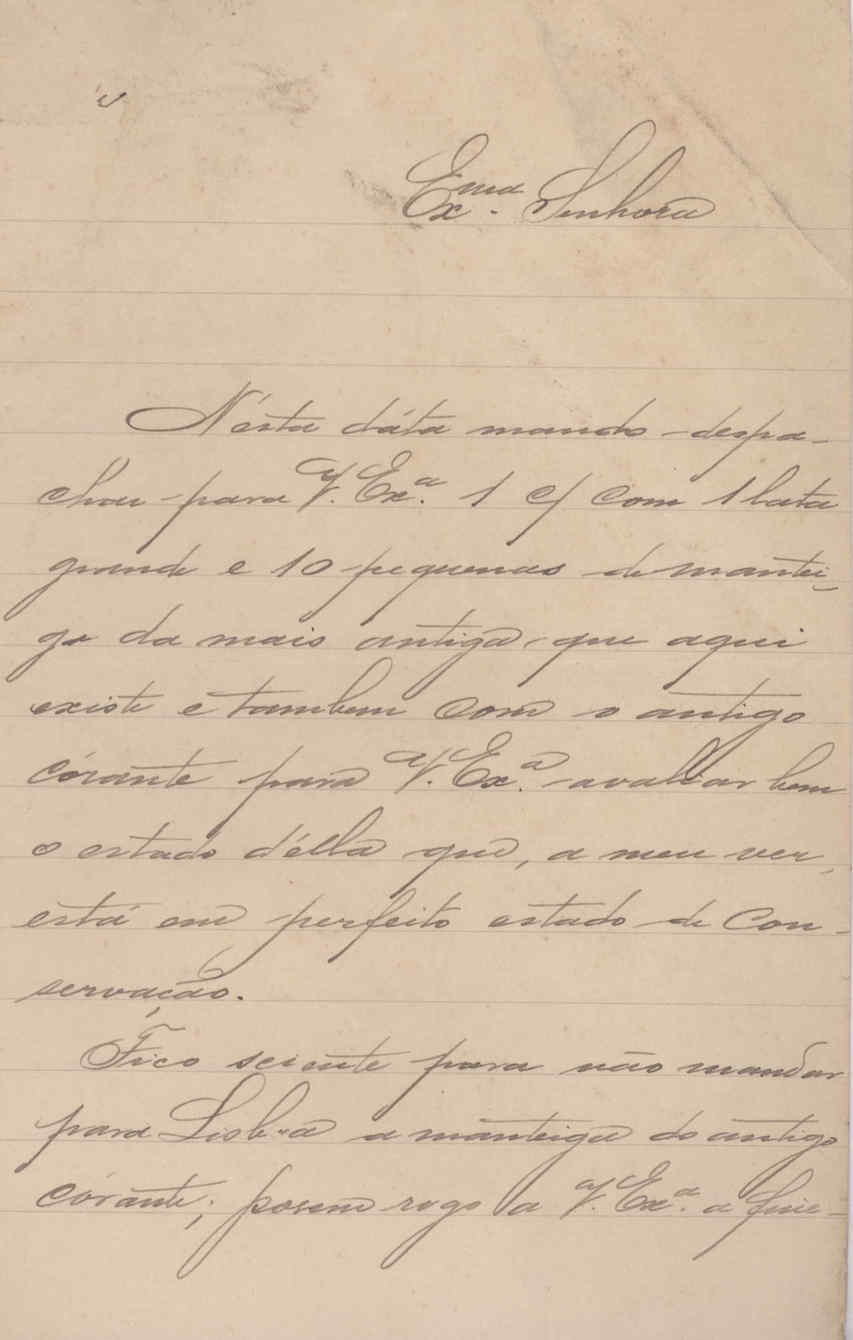 Exma. Senhora
Nésta dáta mando despa-
char para V. Exa. 1 c/ com 1 lata
grande e 10 pequenas de mantei-
ga da mais antiga que aqui
existe e tambem com o antigo
córante para V. Exa. avaliar bem
o estado d'élla que, a meu ver,
está em perfeito estado de con-
servação.
Fico sciente para não mandar
para Lisboa a manteiga do antigo
córante; porem rogo a V. Exa. a fine-